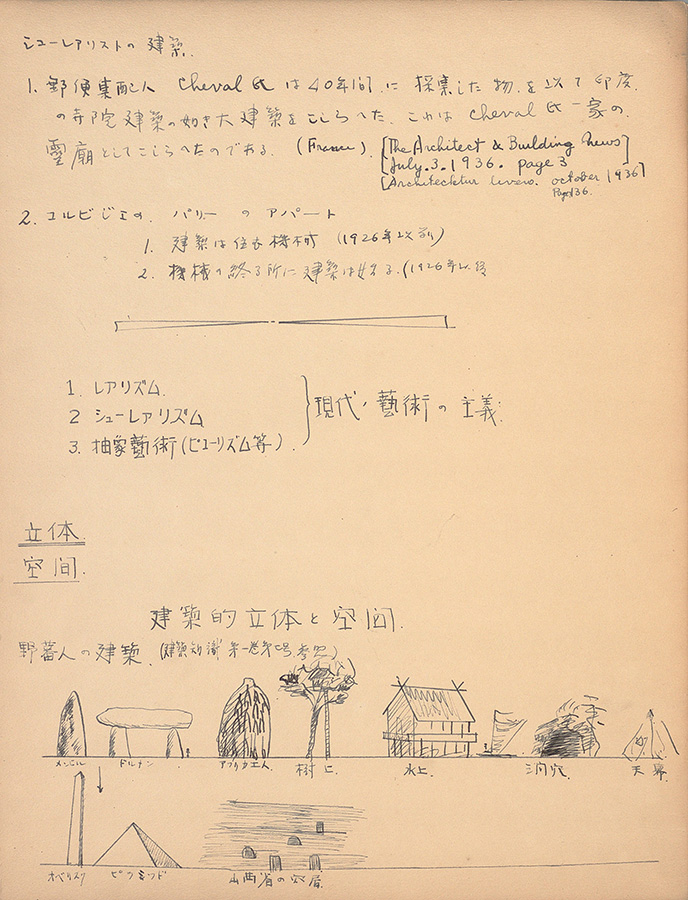 シューレアリストの建築.
1. 郵便集配人 Cheval氏は40年間に採集した物を以て印度
の寺院建築の如き大建築をこしらへた. これは Cheval氏一家の
霊廟としてこしらへたのである. (France).
[The Architect & Building News
July. 3. 1936. page 3]
[Architecktur 1936] october
Page 136.
2. コルビジエの パリー のアパート
1. 建築は住む機械 (1926年以前)
2. 機械の終る所に建築は始る. (1926年以後
1. レアリズム.
2 シューレアリズム
3. 抽象藝術(ピューリズム等).
現代ノ藝術の主義.
立体.
空間.
建築的立体と空間.
野蕃人の建築. (建築知識 第一巻第 号参照)
メンヒル ドルメン アフリカ土人. 樹上. 水上. 洞穴. 天幕.
オベリスク ピラミッド 山西省の窑居.